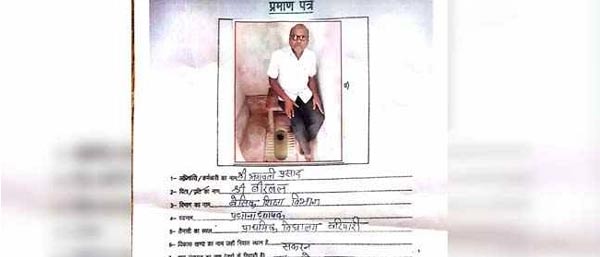 प्रमाण पत्र
1- अधिकारी/कर्मचारी का नाम श्री भगवती प्रसाद
2- पिता/पति का नाम श्री बीरबल
3- विभाग का नाम बेसिक शिक्षा विभाग
4- पदनाम प्रधानाध्यापक
5- तैनाती का स्थल प्राथमिक विद्यालय
6- विकास खण्ड का नाम जहाँ नियत स्थान है सकरन